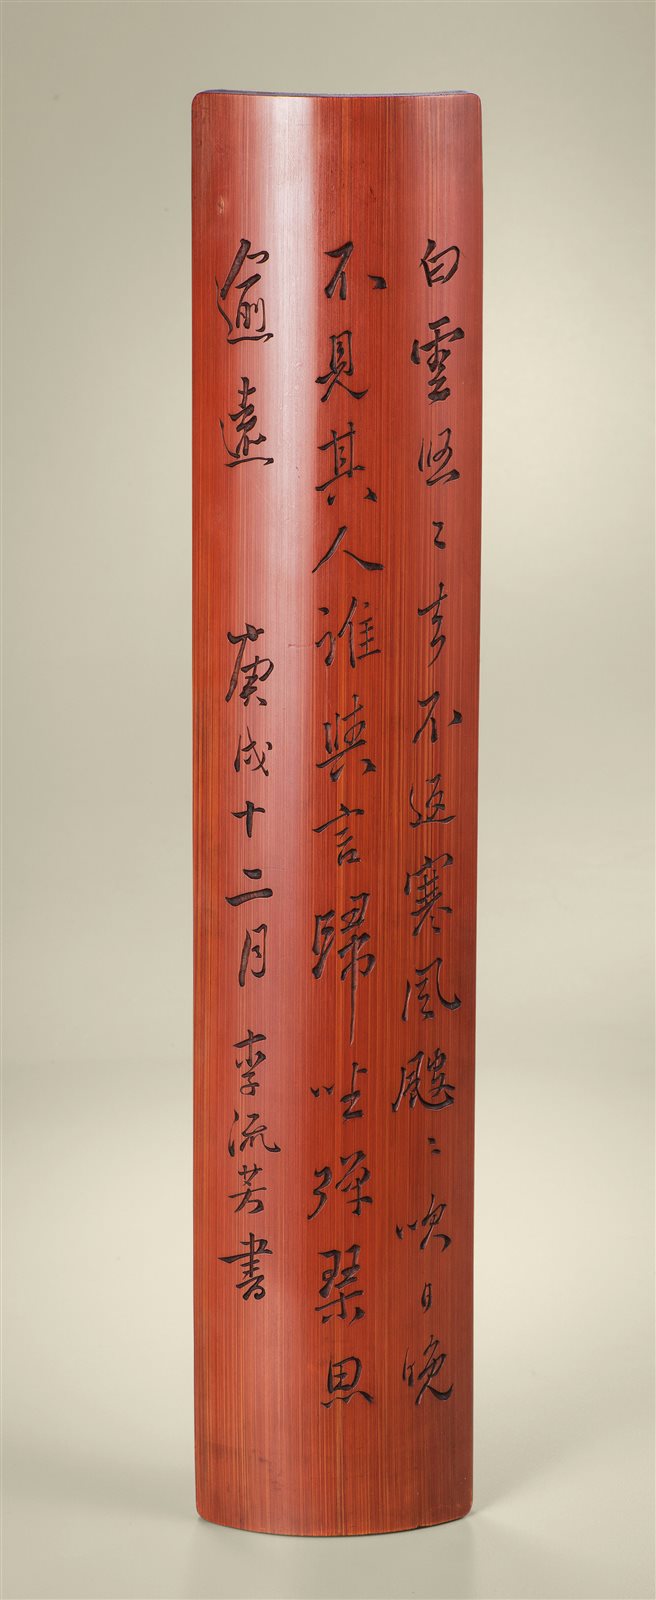 白雲悠〻去不返寒風颼〻吹日晚
不見其人誰與言歸坐彈琴思
逾遠 庚戌十二月李流芳書